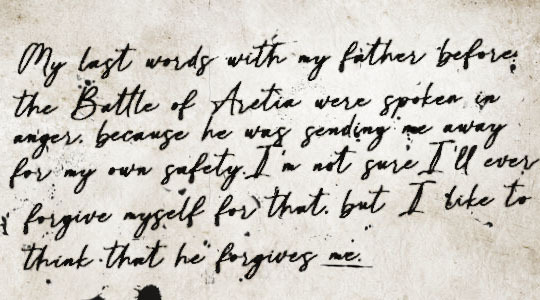 My last words with my father before
the Battle of Aretia were spoken in
anger, because he was sending me away
for my own safety. I'm not sure I'll ever
forgive myself for that, but I like to
think that he forgives me.